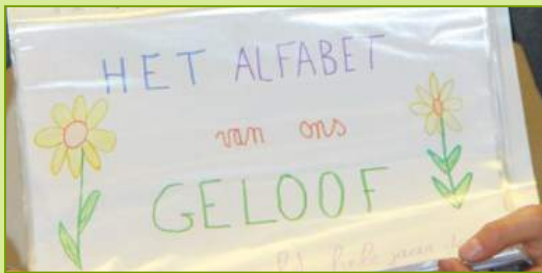 HET ALFABET
van ons
GELOOF